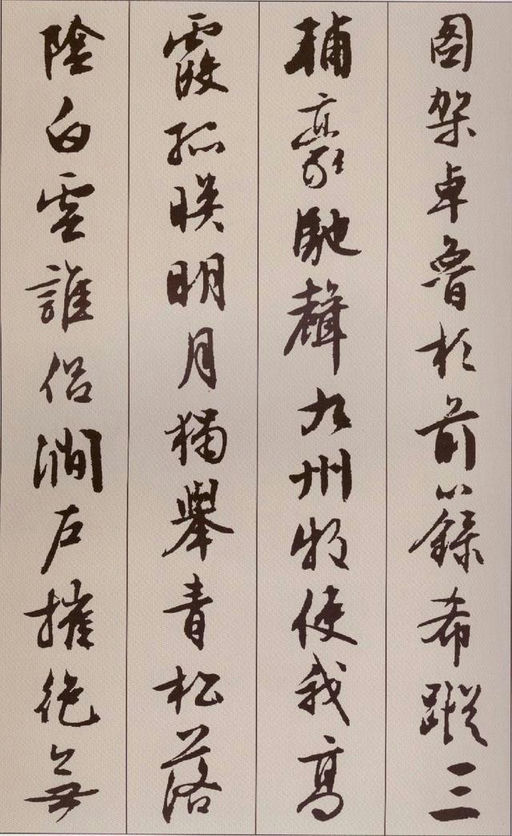 图架卓鲁於前籙希蹤三
輔豪馳聲九州牧使我高
霞孤映明月獨舉青松落
陰白雲誰侶澗戶摧絕無